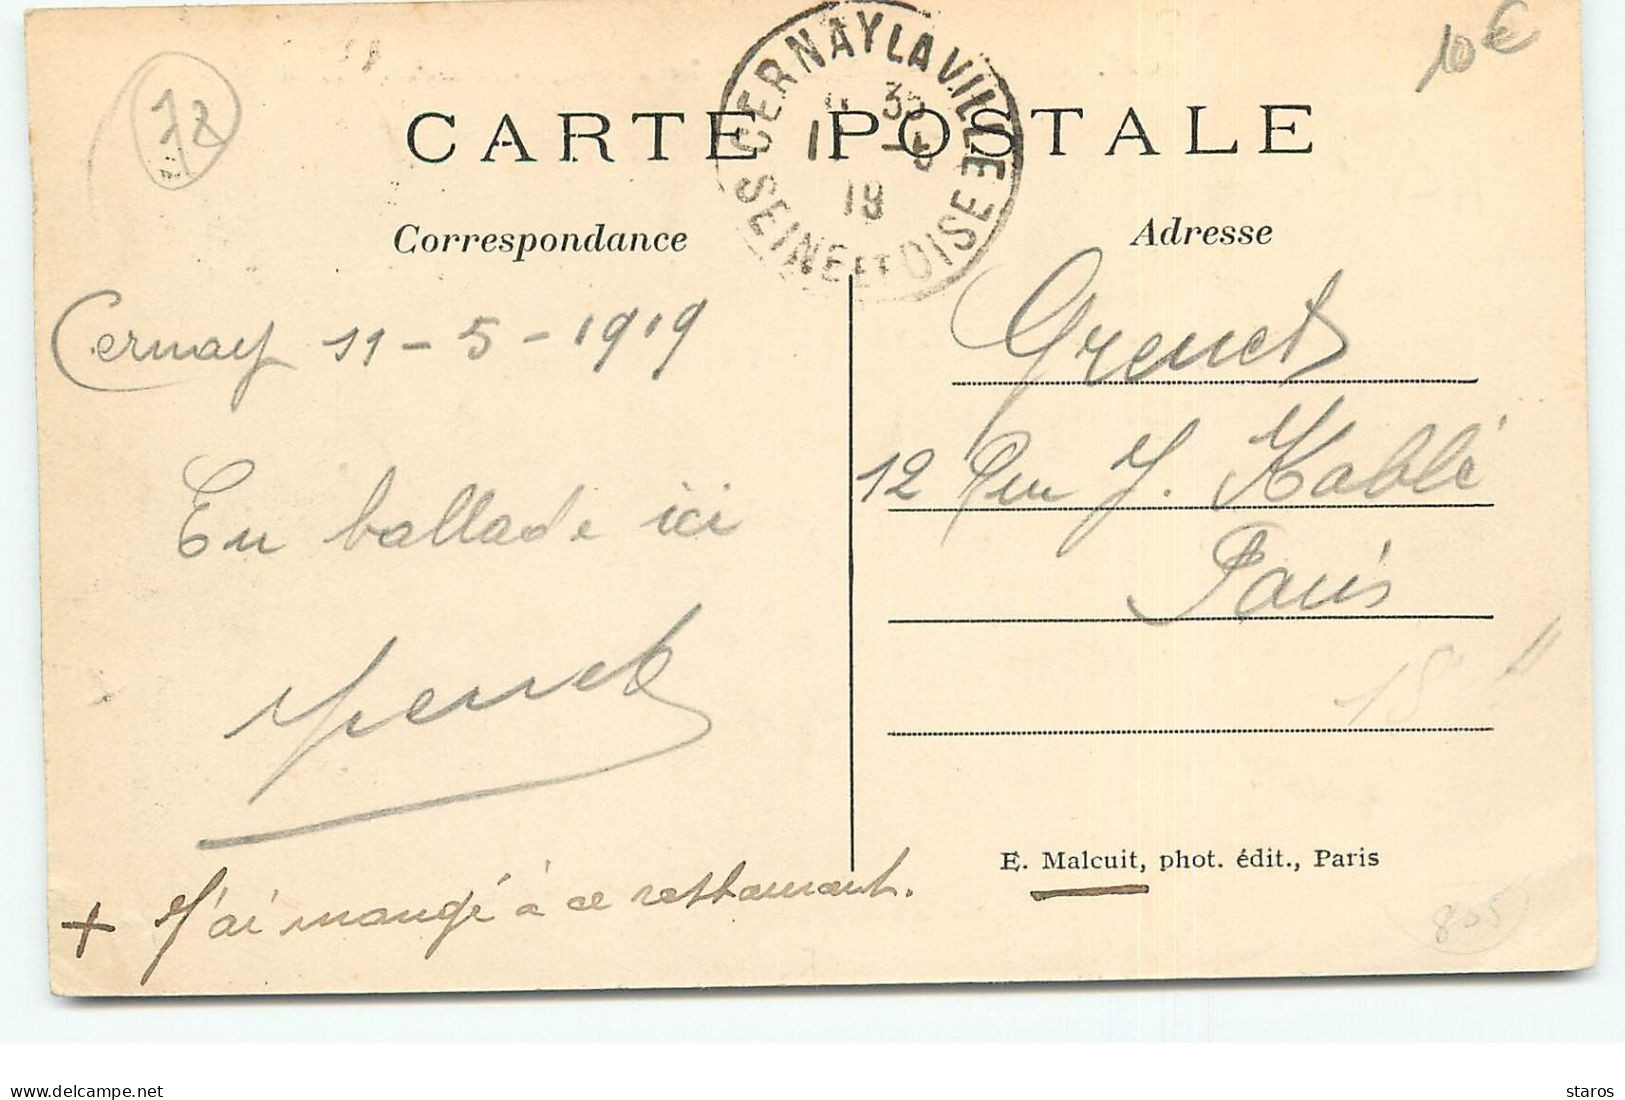 10€
78
CERNAY LA VILLE
SEINE ET OISE
35
1 -5
19
CARTE POSTALE
Correspondance
Adresse
Cernay 11-5-1919
En ballade ici
Grenet
12 Rue J. Kablé
Paris
18
E. Malcuit, phot. édit., Paris
+ J'ai mangé à ce restaurant.
805
delcampe.net
staros